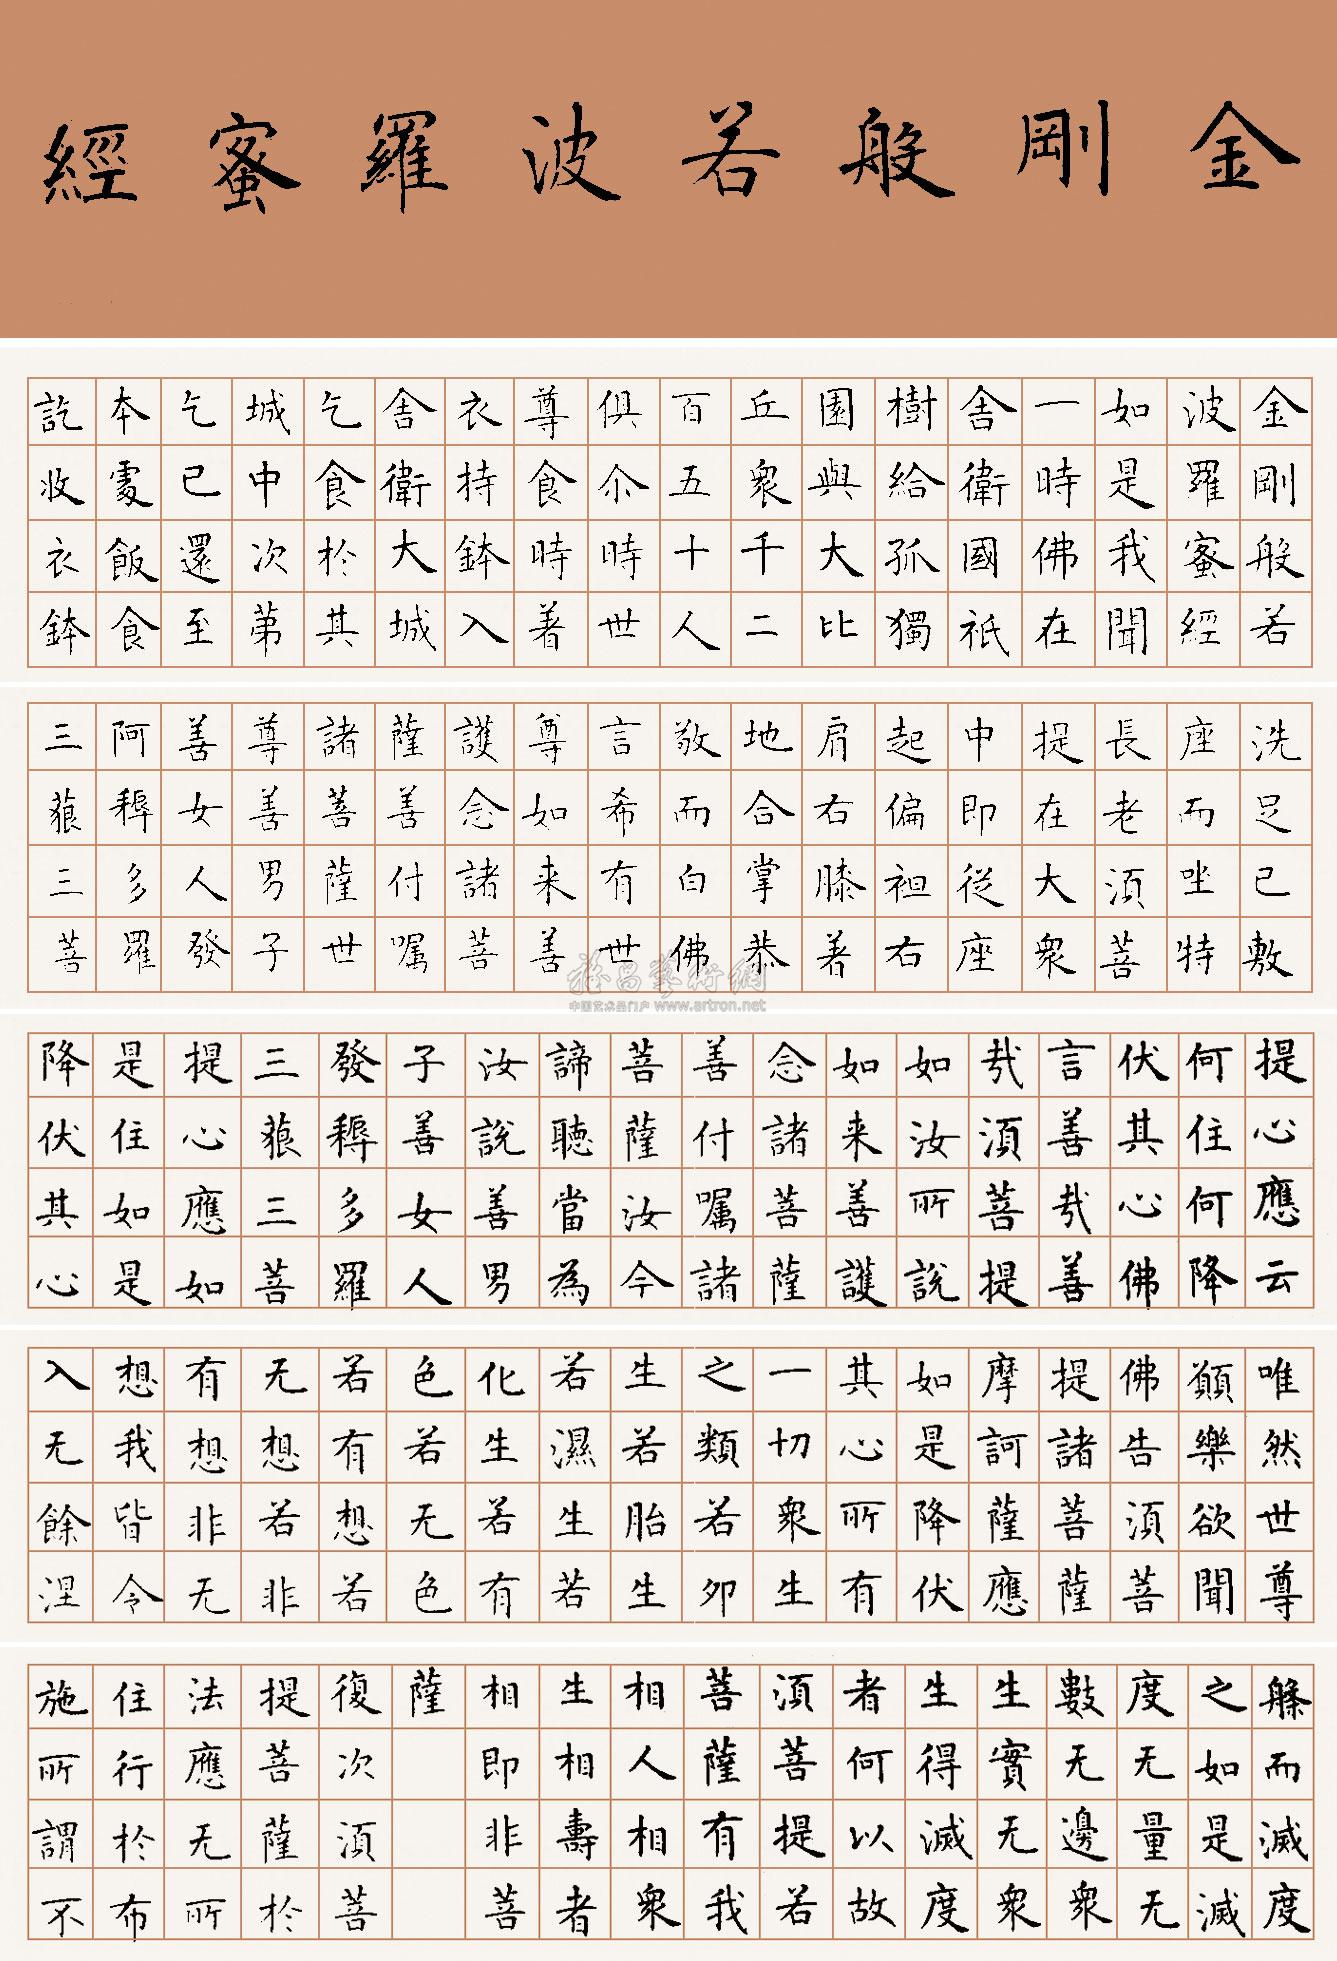 金剛般若波羅蜜經
金剛般若
波羅蜜經
如是我聞
一時佛在
舍衛國祇
樹給孤獨
園與大比
丘衆千二
百五十人
俱尒時世
尊食時著
衣持鉢入
舍衛大城
乞食於其
城中次第
乞已還至
本處飯食
訖收衣鉢
洗足已敷
座而坐特
長老須菩
提在大衆
中即從座
起偏袒右
肩右膝著
地合掌恭
敬而白佛
言希有世
尊如来善
護念諸菩
薩善付嘱
諸菩薩世
尊善男子
善女人發
阿耨多羅
三藐三菩
雅昌藝術網
中国艺术品门户 www.artron.net
提心應云
何住何降
伏其心佛
言善哉善
哉須菩提
如汝所說
如来善護
念諸菩薩
善付嘱諸
菩薩汝今
諦聽當為
汝說善男
子善女人
發耨多羅
三藐三菩
提心應如
是住如是
降伏其心
唯然世尊
願樂欲聞
佛告須菩
提諸菩薩
摩訶薩應
如是降伏
其心所有
一切衆生
之類若卵
生若胎生
若濕生若
化生若有
色若无色
若有想若
无想若非
有想非无
想我皆令
入无餘涅
槃而滅度
之如是滅
度无量无
數无邊衆
生實无衆
生得滅度
者何以故
須菩提若
菩薩有我
相人相衆
生相壽者
相即非菩
薩
復次須菩
提菩薩於
法應无所
住行於布
施所謂不